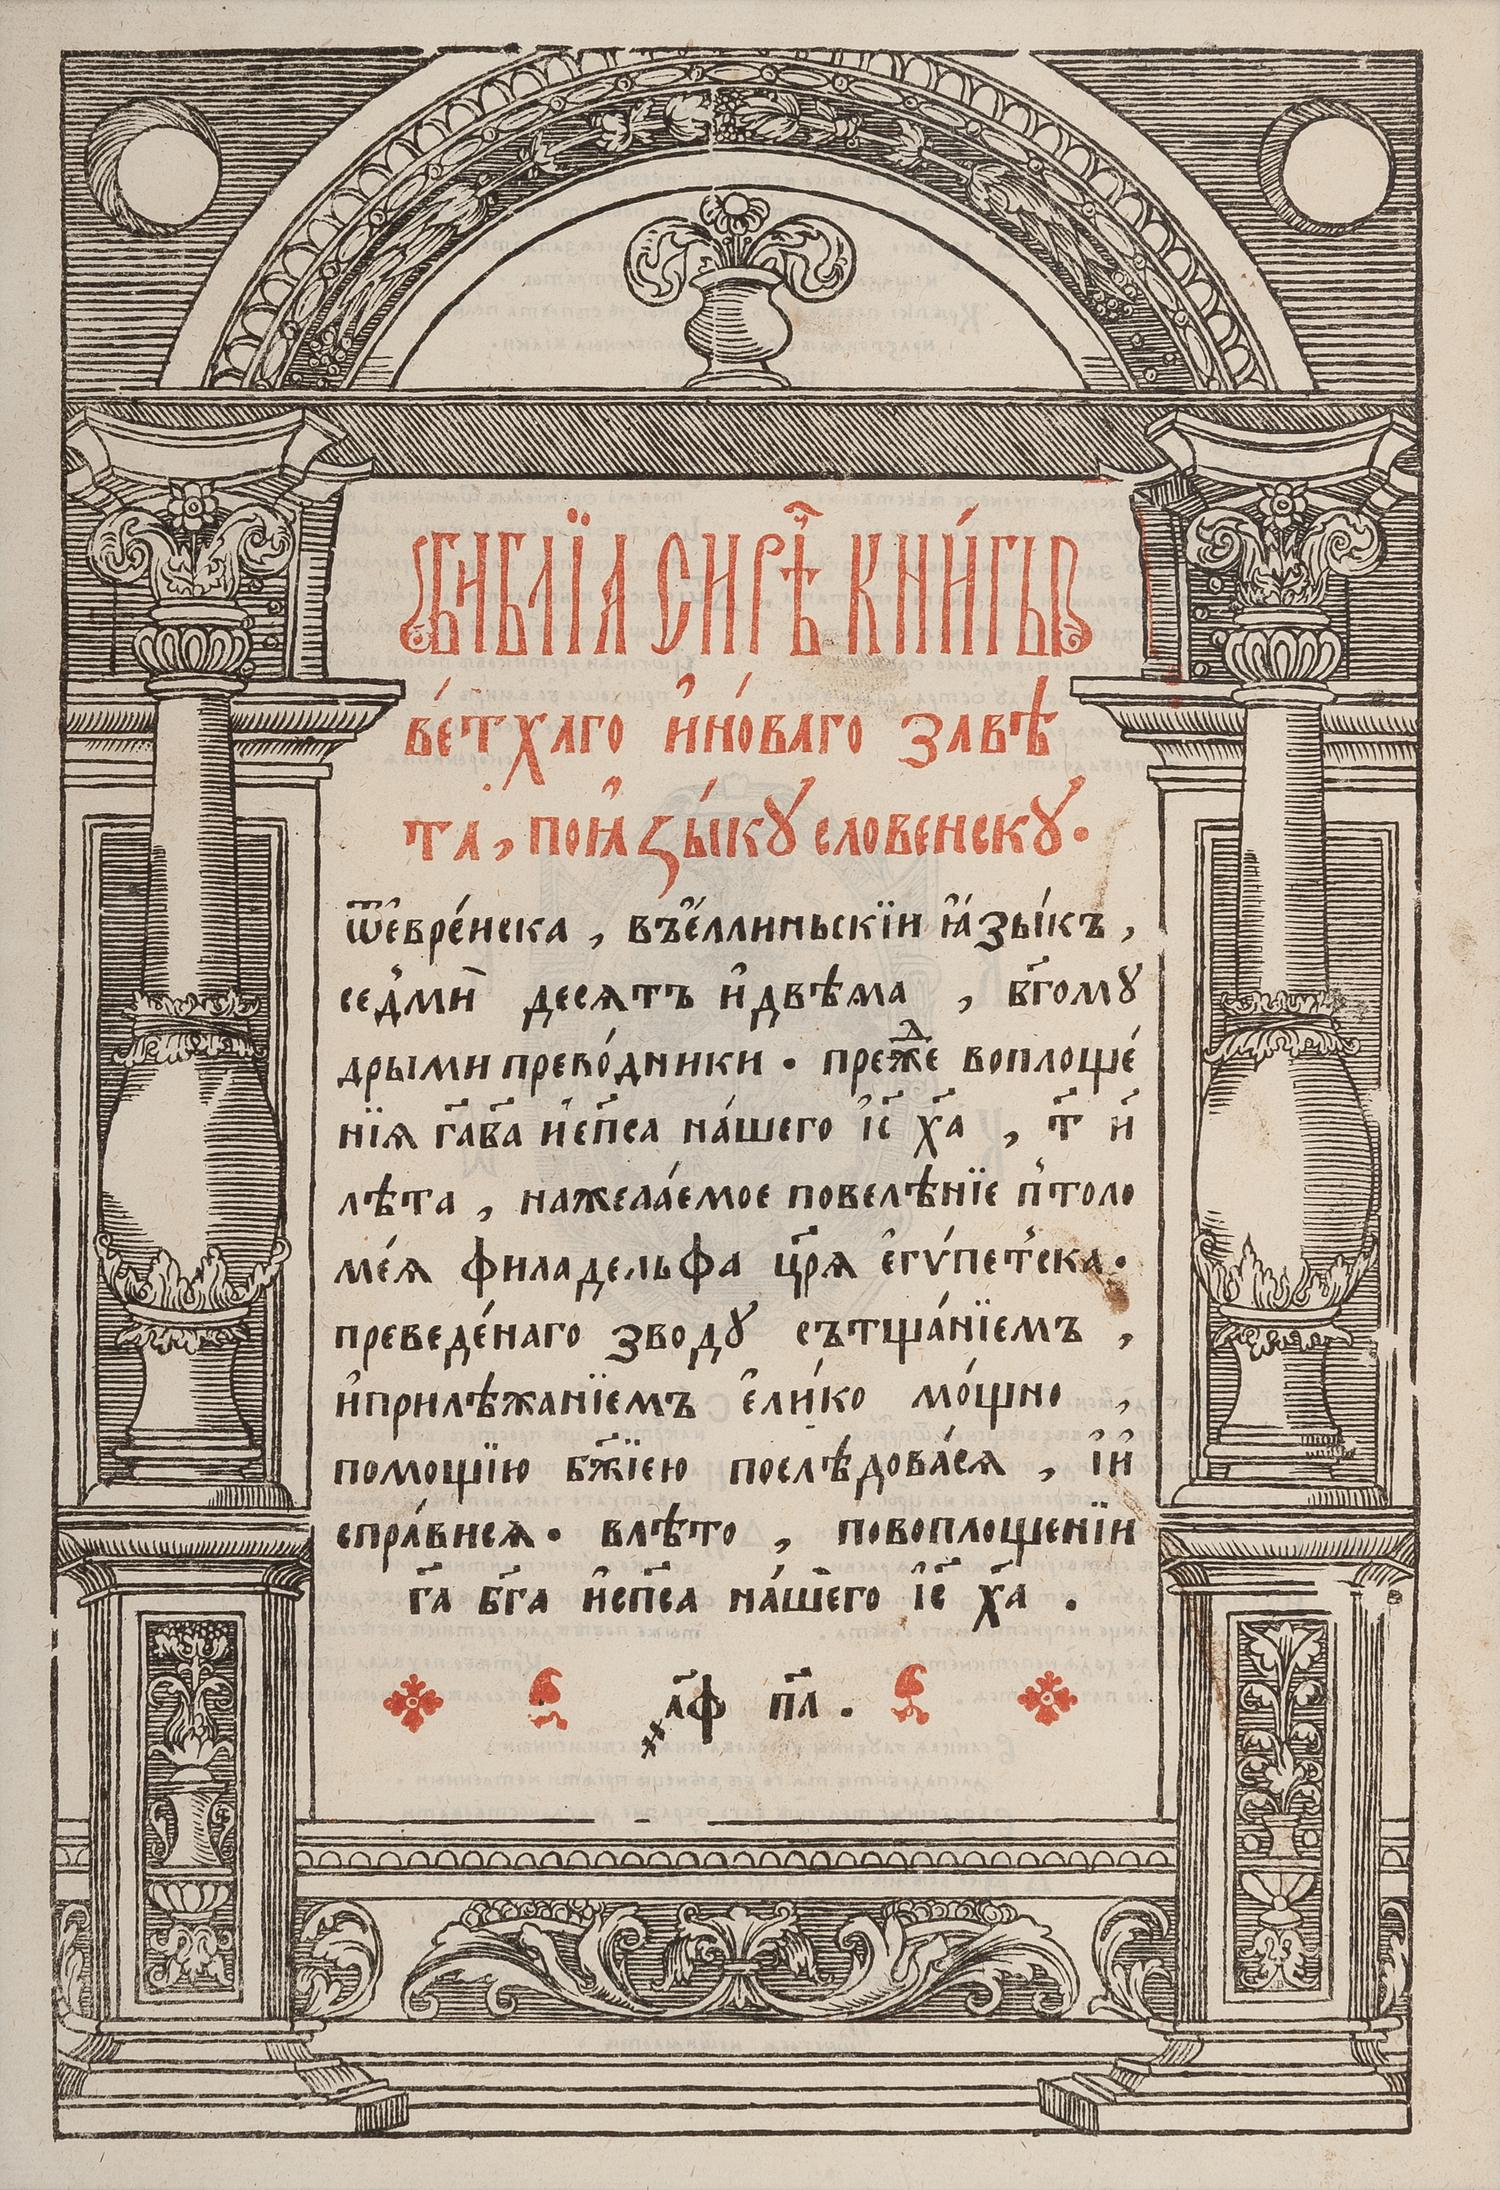 БИБЛЇА СИРѢ́Ч КНИ́ГЫ
ве́тхаго и҆но́ваго завѣ
та, поꙗ҆зы́кꙋ словенскꙋ.
ѿе҆вре́йска, въе҆́ллиньскїи ꙗ҆зы́къ,
седмⷨи десѧтъ и҆двѣма , бг҃омꙋ
дрыми прево́дники. преⷤ́же воплоще́
нїѧ гⷭ҇а бг҃а и҆сп҃са на́шего і҆с҃ х҃а , т҃ и҆
лѣта , нажела́емое повелѣ́нїе пⷮтоло
ме́ѧ филадельфа цр҃ѧ е҆гѵ́петска.
преведе́наго зводꙋ сътща́нїемъ ,
и҆прилѣжанїемъ е҆ли́ко мо́щно ,
помощїю бж҃їею послѣдова́сѧ , і҆и҆
спра́висѧ. влѣто , повоплощенїи
гⷭ҇а бг҃а и҆сп҃са на́шего і҆с҃ х҃а .
҂а҃ф п҃а .